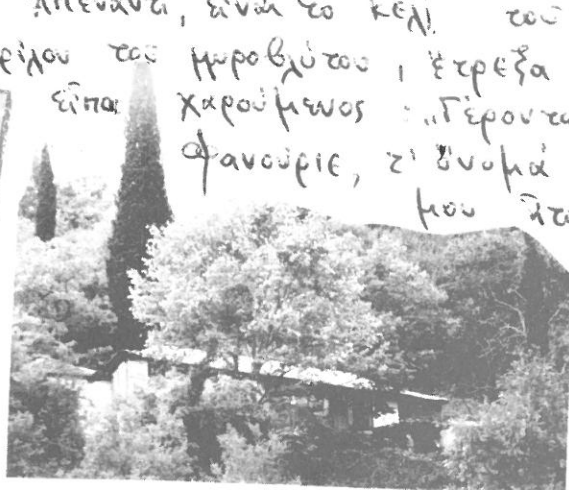 Ἀπέναντι, εἶναι το κελὶ τοῦ
ρίλου τοῦ μυροβλύτου, ἔτρεξα
εἶπα χαρούμενος : „Γέροντα
Φανούριε, τ' ὄνομά
μου